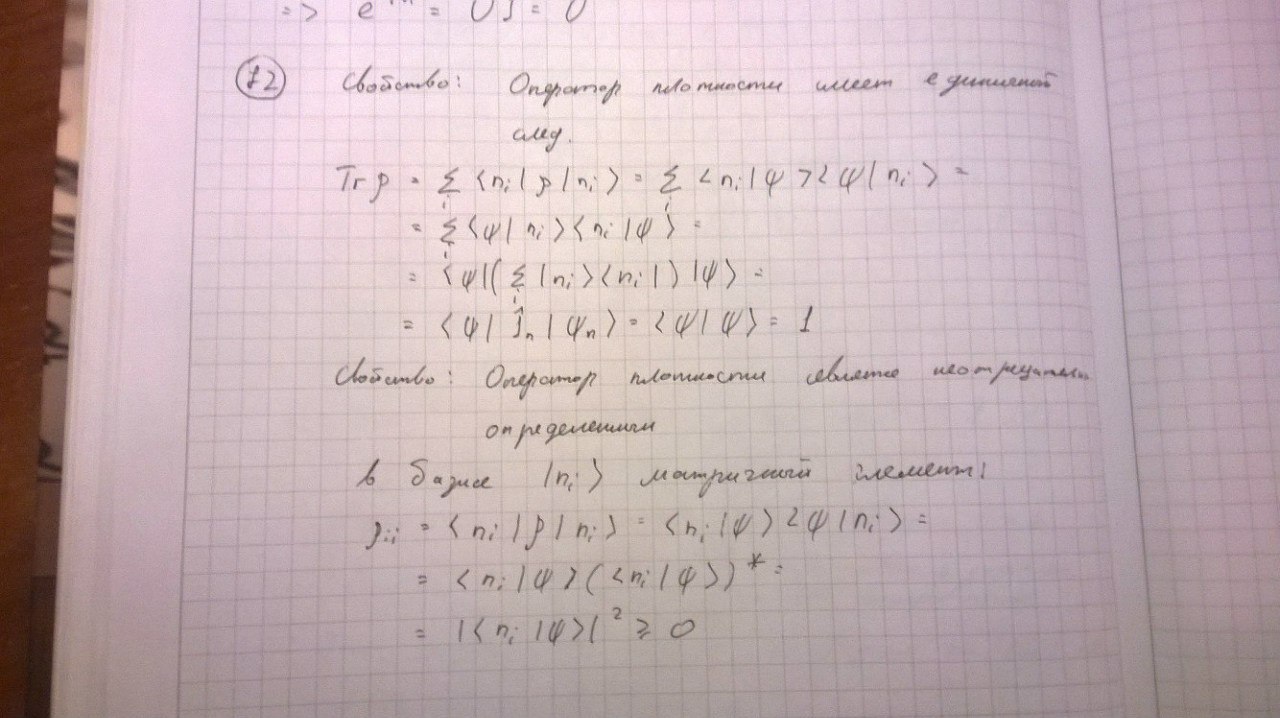 => e = 0} = 0
12 Свойство: Оператор плотности имеет единичный
след.
Tr ρ = Σ_i <n_i|ρ|n_i> = Σ_i <n_i|ψ><ψ|n_i> =
= Σ_i <ψ|n_i><n_i|ψ> =
= <ψ|(Σ_i |n_i><n_i|)|ψ> =
= <ψ|Î_n|ψ_n> = <ψ|ψ> = 1
Свойство: Оператор плотности является неотрицательн
определенным
в базисе |n_i> матричный элемент:
ρ_ii = <n_i|ρ|n_i> = <n_i|ψ><ψ|n_i> =
= <n_i|ψ>(<n_i|ψ>)* =
= |<n_i|ψ>|² ≥ 0